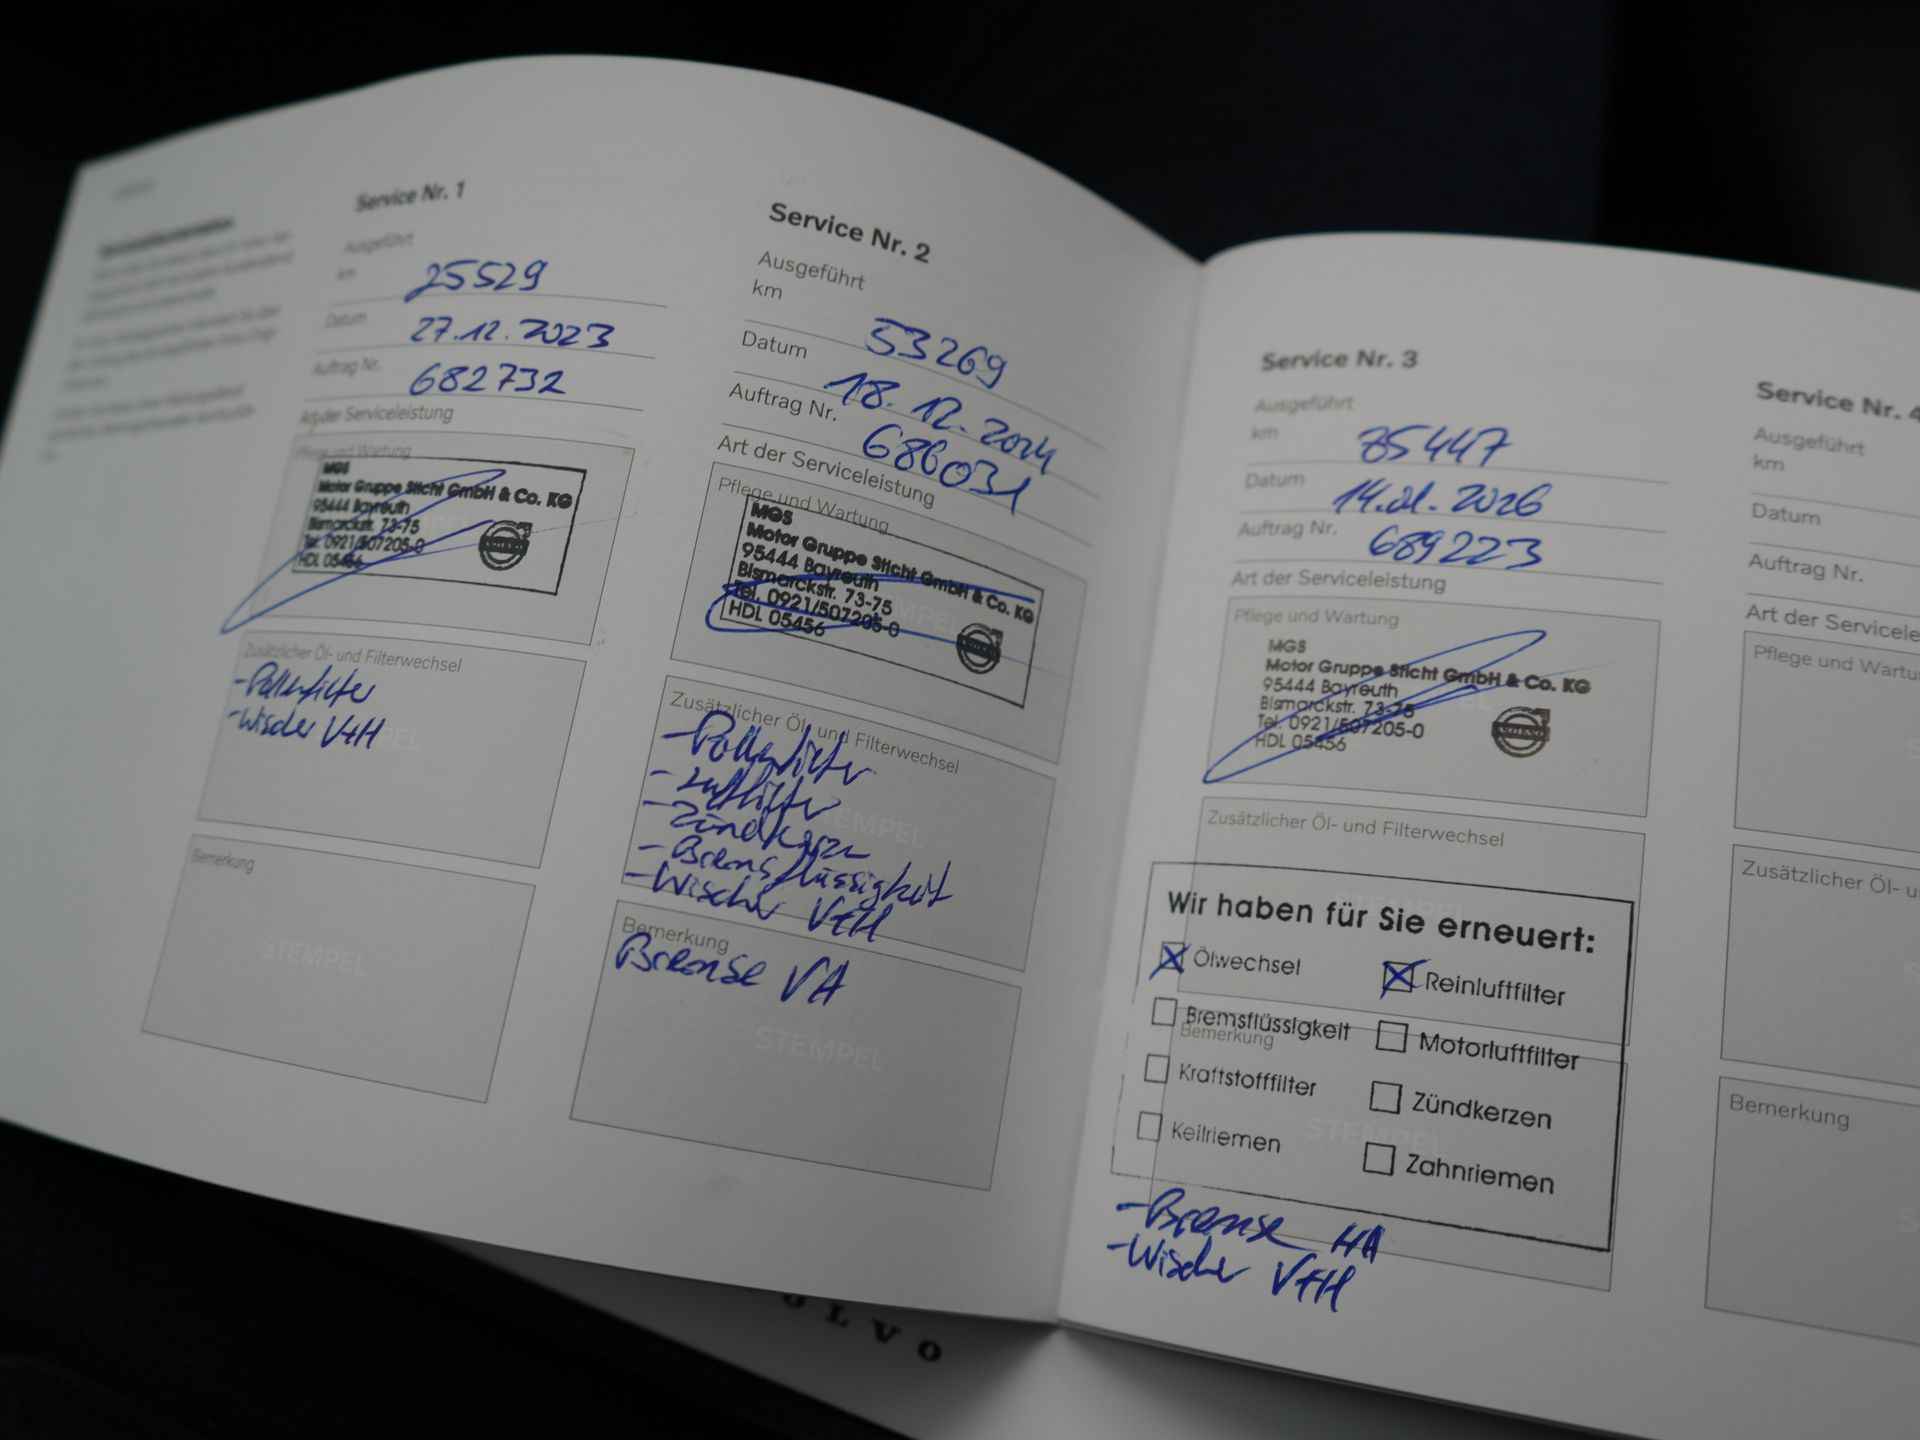 Service Nr. 1
Ausgeführt
km 25529
Datum 27.12.2023
Auftrag Nr. 682732
Art der Serviceleistung
Pflege und Wartung
MGS
Motor Gruppe Sticht GmbH & Co. KG
95444 Bayreuth
Bismarckstr. 73-75
Tel. 0921/507205-0
HDL 05456
Zusätzlicher Öl- und Filterwechsel
- Pollenfilter
- Wischer V+H
STEMPEL
Bemerkung
STEMPEL
Service Nr. 2
Ausgeführt
km 53269
Datum 18.12.2024
Auftrag Nr. 686031
Art der Serviceleistung
Pflege und Wartung
MGS
Motor Gruppe Sticht GmbH & Co. KG
95444 Bayreuth
Bismarckstr. 73-75
Tel. 0921/507205-0
HDL 05456
Zusätzlicher Öl- und Filterwechsel
- Pollenfilter
- Luftfilter
- Zündkerzen
- Bremsflüssigkeit
- Wischer V+H
STEMPEL
Bemerkung
Bremse VA
STEMPEL
Service Nr. 3
Ausgeführt
km 85447
Datum 14.01.2026
Auftrag Nr. 689223
Art der Serviceleistung
Pflege und Wartung
MGS
Motor Gruppe Sticht GmbH & Co. KG
95444 Bayreuth
Bismarckstr. 73-75
Tel. 0921/507205-0
HDL 05456
Zusätzlicher Öl- und Filterwechsel
Wir haben für Sie erneuert:
Ölwechsel Reinluftfilter
Bremsflüssigkeit Motorluftfilter
Bemerkung
Kraftstofffilter Zündkerzen
STEMPEL
Keilriemen Zahnriemen
- Bremse HA
- Wischer V+H
Service Nr. 4
Ausgeführt
km
Datum
Auftrag Nr.
Art der Servicele
Pflege und Wartu
Zusätzlicher Öl- u
Bemerkung
OLVO